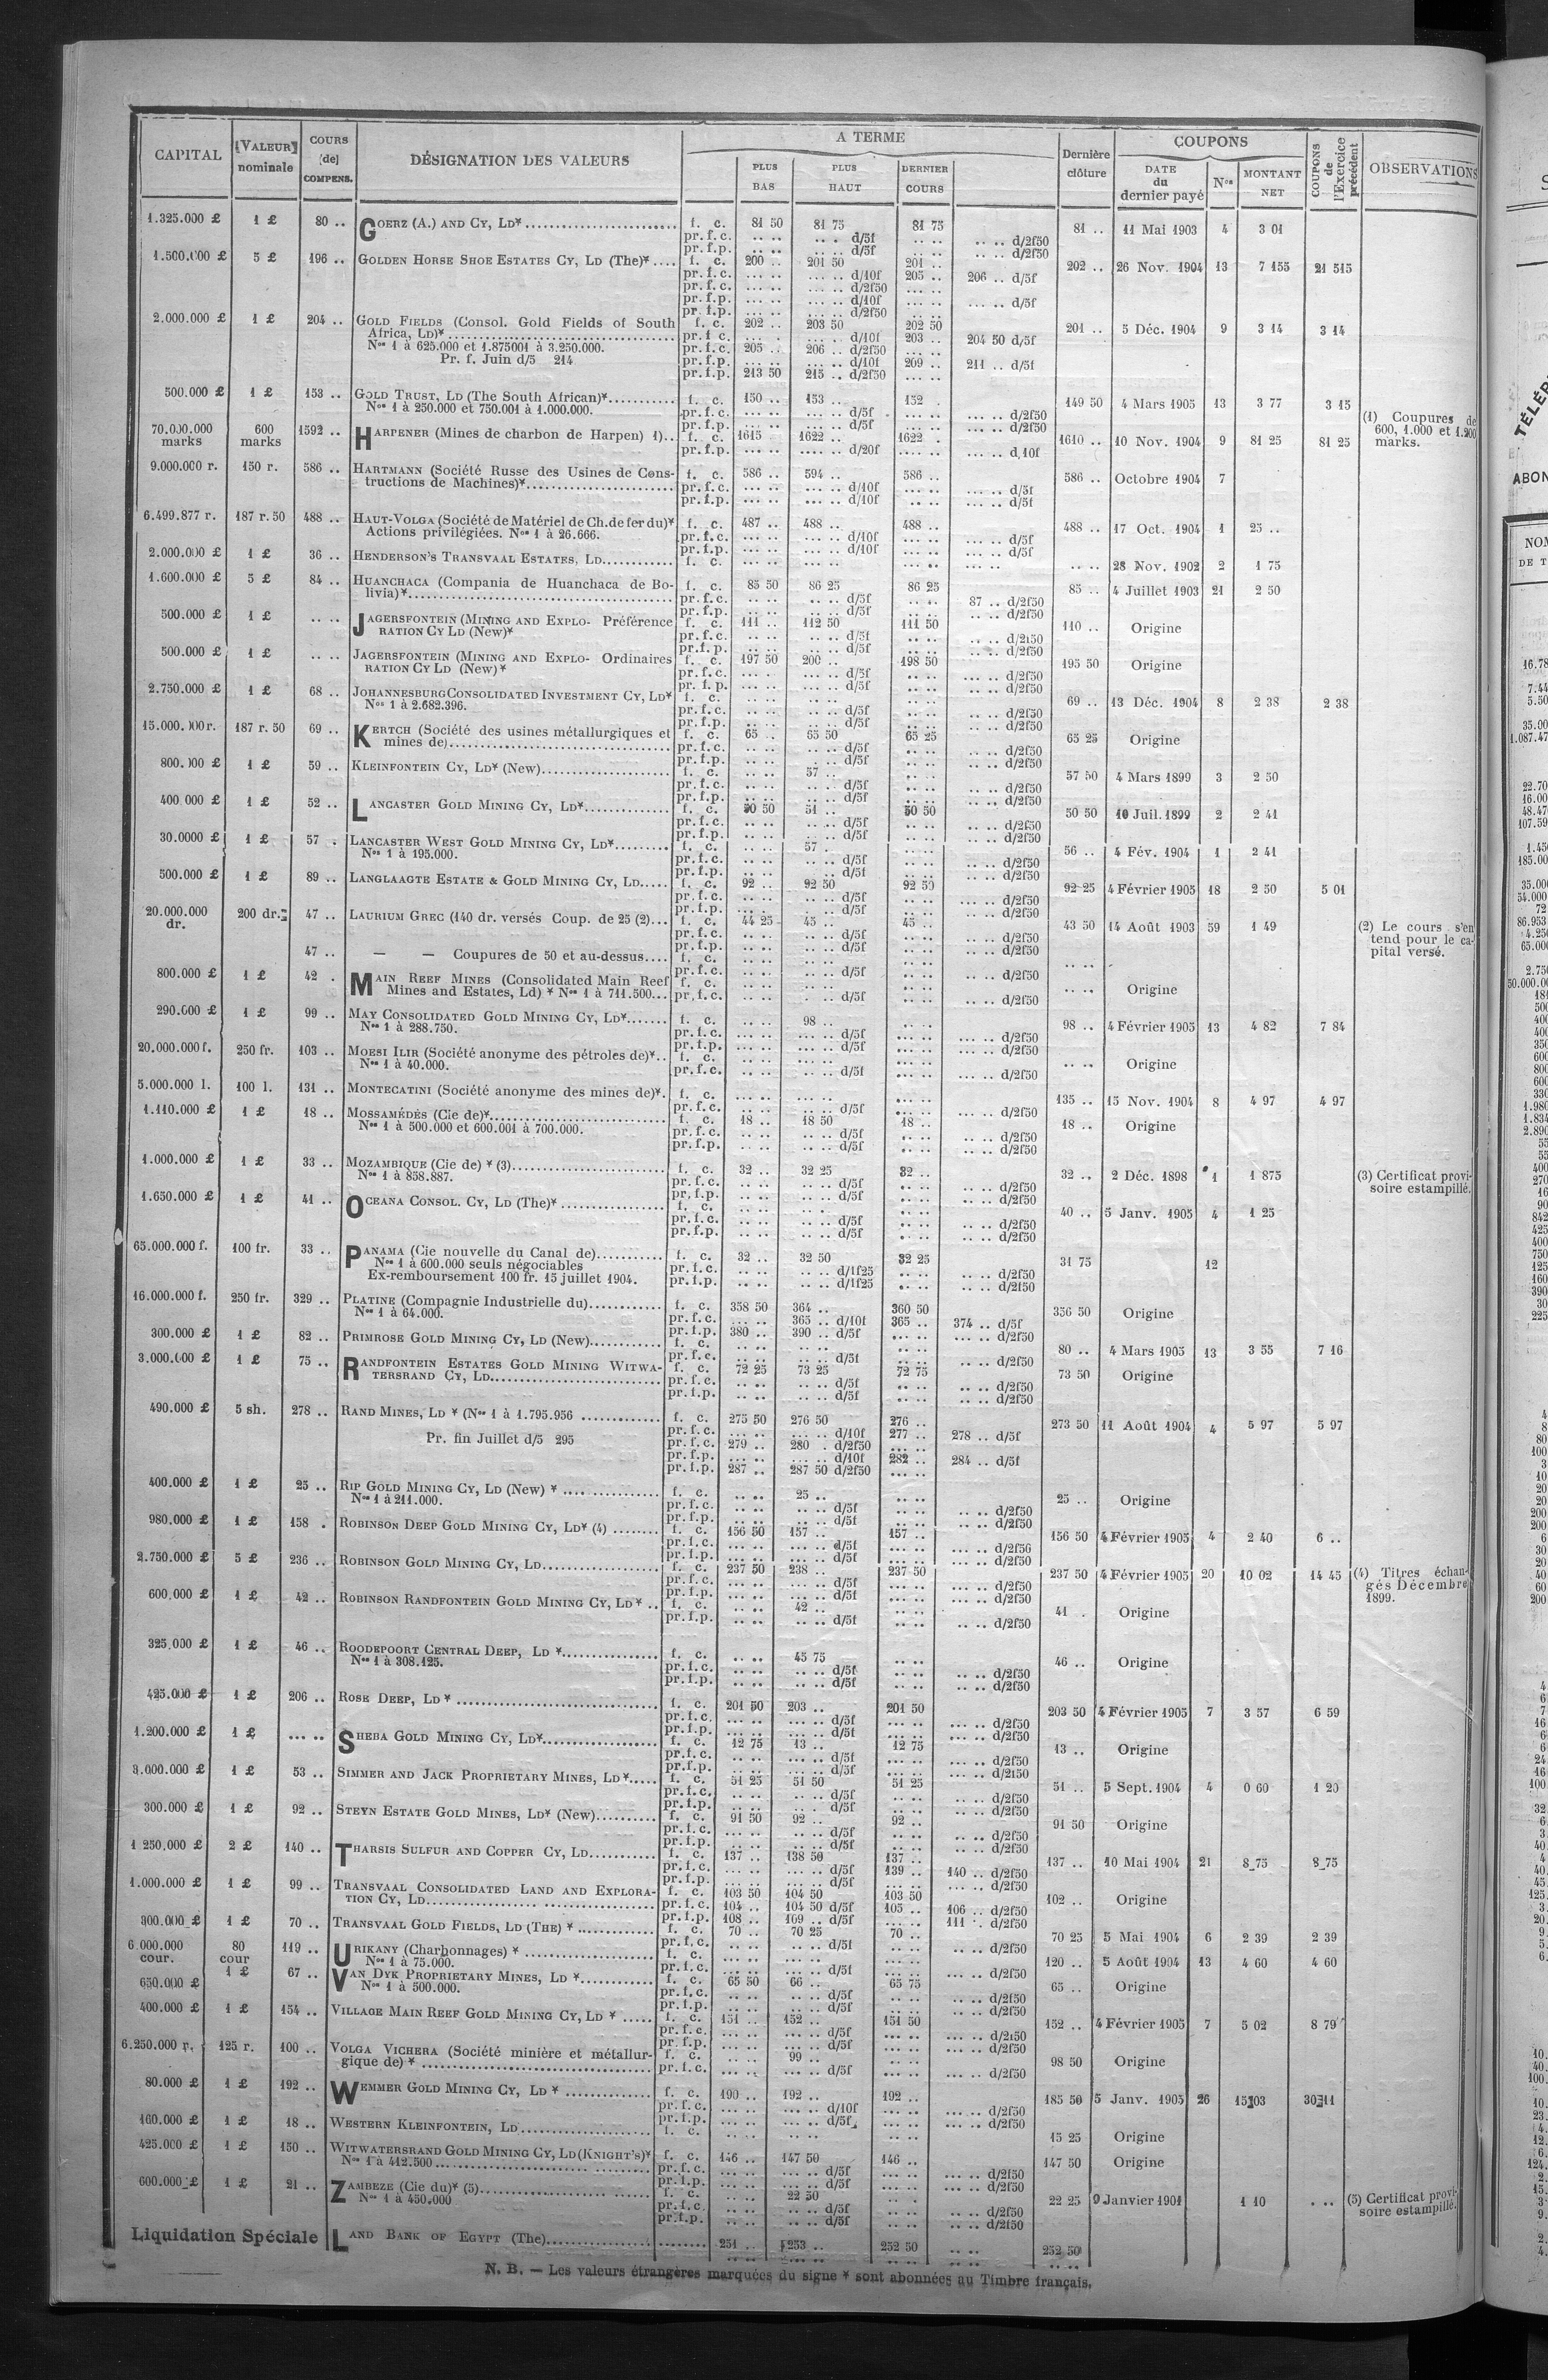 CAPITAL | VALEUR nominale | COURS de COMPENS. | DÉSIGNATION DES VALEURS | A TERME | PLUS BAS | PLUS HAUT | DERNIER COURS | Dernière clôture | COUPONS | DATE du dernier payé | Nos | MONTANT NET | COUPONS de l'Exercice précédent | OBSERVATIONS
1.325.000 £ 1 £ 80 .. GOERZ (A.) AND CY, LD* f. c. 81 50 81 75 81 75 81 .. 11 Mai 1903 4 3 01
pr. f. c. .. .. .. .. d/5f .. .. .. .. d/2f50
pr. f. p. .. .. .. .. d/5f .. .. .. .. d/2f50
1.500.000 £ 5 £ 196 .. GOLDEN HORSE SHOE ESTATES CY, LD (The)* f. c. 200 .. 201 50 201 .. 202 .. 26 Nov. 1904 13 7 155 21 515
pr. f. c. ... .. ... .. d/10f 205 .. 206 .. d/5f
pr. f. c. ... .. ... .. d/2f50
pr. f. p. ... .. ... .. d/10f ... .. d/5f
pr. f. p. ... .. ... .. d/2f50
2.000.000 £ 1 £ 204 .. GOLD FIELDS (Consol. Gold Fields of South f. c. 202 .. 203 50 202 50 201 .. 5 Déc. 1904 9 3 14 3 14
Africa, LD)* pr. f. c. d/10f 203 .. 204 50 d/5f
Nos 1 à 625.000 et 1.875001 à 3.250.000. pr. f. c. 205 .. 206 .. d/2f50
Pr. f. Juin d/5 214 pr. f. p. ... .. ... .. d/10f 209 .. 211 .. d/5f
pr. f. p. 213 50 215 .. d/2f50 ... ..
500.000 £ 1 £ 153 .. GOLD TRUST, LD (The South African)* f. c. 150 .. 153 .. 152 . 149 50 4 Mars 1905 13 3 77 3 15
Nos 1 à 250.000 et 750.001 à 1.000.000. pr. f. c. d/5f d/2f50
pr. f. p. d/5f d/2f50
70.000.000 marks 600 marks 1592 .. HARPENER (Mines de charbon de Harpen) 1).. f. c. 1615 1622 .. 1622 . 1610 .. 10 Nov. 1904 9 81 25 81 25 (1) Coupures de 600, 1.000 et 1.200 marks.
pr. f. p. d/20f d,10f
9.000.000 r. 150 r. 586 .. HARTMANN (Société Russe des Usines de Cons- f. c. 586 .. 594 .. 586 .. 586 .. Octobre 1904 7
tructions de Machines)* pr. f. c. d/10f d/5f
pr. f. p. d/10f d/5f
6.499.877 r. 187 r. 50 488 .. HAUT-VOLGA (Société de Matériel de Ch. de fer du)* f. c. 487 .. 488 .. 488 .. 488 .. 17 Oct. 1904 1 25 ..
Actions privilégiées. Nos 1 à 26.666. pr. f. c. d/10f d/5f
pr. f. p. d/10f d/5f
2.000.000 £ 1 £ 36 .. HENDERSON'S TRANSVAAL ESTATES, LD f. c. ... .. 28 Nov. 1902 2 1 75
1.600.000 £ 5 £ 84 .. HUANCHACA (Compania de Huanchaca de Bo- f. c. 85 50 86 25 86 25 85 .. 4 Juillet 1903 21 2 50
livia)* pr. f. c. d/5f 87 .. d/2f50
pr. f. p. d/5f d/2f50
500.000 £ 1 £ .. .. JAGERSFONTEIN (MINING AND EXPLO- Préférence f. c. 111 .. 112 50 111 50 110 .. Origine
RATION CY LD (New)* pr. f. c. d/5f d/2f50
pr. f. p. d/5f d/2f50
500.000 £ 1 £ .. .. JAGERSFONTEIN (MINING AND EXPLO- Ordinaires f. c. 197 50 200 .. 198 50 195 50 Origine
RATION CY LD (New)* pr. f. c. d/5f d/2f50
pr. f. p. d/5f d/2f50
2.750.000 £ 1 £ 68 .. JOHANNESBURG CONSOLIDATED INVESTMENT CY, LD* f. c. 69 .. 13 Déc. 1904 8 2 38 2 38
Nos 1 à 2.682.396. pr. f. c. d/5f d/2f50
pr. f. p. d/5f d/2f50
15.000.000 r. 187 r. 50 69 .. KERTCH (Société des usines métallurgiques et f. c. 65 .. 65 50 65 25 65 25 Origine
mines de) pr. f. c. d/5f d/2f50
pr. f. p. d/5f d/2f50
800.000 £ 1 £ 59 .. KLEINFONTEIN CY, LD* (New) f. c. .. .. 57 .. 57 50 4 Mars 1899 3 2 50
pr. f. c. d/5f d/2f50
pr. f. p. d/5f d/2f50
400.000 £ 1 £ 52 .. LANCASTER GOLD MINING CY, LD* f. c. 50 50 51 .. 50 50 50 50 10 Juil. 1899 2 2 41
pr. f. c. d/5f d/2f50
pr. f. p. d/5f d/2f50
30.0000 £ 1 £ 57 . LANCASTER WEST GOLD MINING CY, LD* f. c. .. .. 57 . 56 .. 4 Fév. 1904 1 2 41
Nos 1 à 195.000. pr. f. c. d/5f d/2f50
pr. f. p. d/5f d/2f50
500.000 £ 1 £ 89 .. LANGLAAGTE ESTATE & GOLD MINING CY, LD f. c. 92 .. 92 50 92 50 92 25 4 Février 1905 18 2 50 5 01
pr. f. c. d/5f d/2f50
pr. f. p. d/5f d/2f50
20.000.000 dr. 200 dr. 47 .. LAURIUM GREC (140 dr. versés Coup. de 25 (2) f. c. 44 25 45 .. 45 .. 43 50 14 Août 1903 59 1 49 (2) Le cours s'entend pour le capital versé.
pr. f. c. d/5f d/2f50
pr. f. p. d/5f d/2f50
47 .. — — Coupures de 50 et au-dessus f. c. .. ..
pr. f. c. d/5f d/2f50
800.000 £ 1 £ 42 . MAIN REEF MINES (Consolidated Main Reef f. c. .. .. Origine
Mines and Estates, Ld) * Nos 1 à 711.500 pr. f. c. d/5f d/2f50
290.000 £ 1 £ 99 .. MAY CONSOLIDATED GOLD MINING CY, LD* f. c. .. .. 98 .. 98 .. 4 Février 1905 13 4 82 7 84
Nos 1 à 288.750. pr. f. c. d/5f d/2f50
pr. f. p. d/5f d/2f50
20.000.000 f. 250 fr. 103 .. MOESI ILIR (Société anonyme des pétroles de)* f. c. .. .. Origine
Nos 1 à 40.000. pr. f. c. d/5f d/2f50
5.000.000 l. 100 l. 131 .. MONTECATINI (Société anonyme des mines de)* f. c. 135 .. 15 Nov. 1904 8 4 97 4 97
pr. f. c. d/5f d/2f50
1.110.000 £ 1 £ 18 .. MOSSAMÉDÈS (Cie de)* f. c. 18 .. 18 50 18 .. 18 .. Origine
Nos 1 à 500.000 et 600.001 à 700.000. pr. f. c. d/5f d/2f50
pr. f. p. d/5f d/2f50
1.000.000 £ 1 £ 33 .. MOZAMBIQUE (Cie de) * (3) f. c. 32 .. 32 25 32 .. 32 .. 2 Déc. 1898 1 1 875 (3) Certificat provisoire estampillé.
Nos 1 à 858.887. pr. f. c. d/5f d/2f50
pr. f. p. d/5f d/2f50
1.650.000 £ 1 £ 41 .. OCEANA CONSOL. CY, LD (The)* f. c. 40 .. 5 Janv. 1905 4 1 25
pr. f. c. d/5f d/2f50
pr. f. p. d/5f d/2f50
65.000.000 f. 100 fr. 33 .. PANAMA (Cie nouvelle du Canal de) f. c. 32 .. 32 50 32 25 31 75 12
Nos 1 à 600.000 seuls négociables pr. f. c. d/1f25 d/2f50
Ex-remboursement 100 fr. 15 juillet 1904. pr. f. p. d/1f25 d/2f50
16.000.000 f. 250 fr. 329 .. PLATINE (Compagnie Industrielle du) f. c. 358 50 364 .. 360 50 356 50 Origine
Nos 1 à 64.000. pr. f. c. ... .. 365 .. d/10f 365 .. 374 .. d/5f
pr. f. p. 380 .. 390 .. d/5f ... .. d/2f50
300.000 £ 1 £ 82 .. PRIMROSE GOLD MINING CY, LD (New) f. c. 80 .. 4 Mars 1905 13 3 55 7 16
pr. f. c. d/5f d/2f50
3.000.000 £ 1 £ 75 .. RANDFONTEIN ESTATES GOLD MINING WITWA- f. c. 72 25 73 25 72 75 73 50 Origine
TERSRAND CY, LD pr. f. c. d/5f d/2f50
pr. f. p. d/5f d/2f50
490.000 £ 5 sh. 278 .. RAND MINES, LD * (Nos 1 à 1.795.956 f. c. 275 50 276 50 276 .. 273 50 11 Août 1904 4 5 97 5 97
pr. f. c. ... .. d/10f 277 .. 278 .. d/5f
Pr. fin Juillet d/5 295 pr. f. c. 279 .. 280 . d/2f50
pr. f. p. ... .. d/10f 282 .. 284 .. d/5f
pr. f. p. 287 .. 287 50 d/2f50
400.000 £ 1 £ 25 .. RIP GOLD MINING CY, LD (New) * f. c. .. .. 25 .. 25 .. Origine
Nos 1 à 211.000. pr. f. c. d/5f d/2f50
pr. f. p. d/5f d/2f50
980.000 £ 1 £ 158 . ROBINSON DEEP GOLD MINING CY, LD* (4) f. c. 156 50 157 .. 157 .. 156 50 4 Février 1905 4 2 40 6 ..
pr. f. c. d/5f d/2f50
pr. f. p. d/5f d/2f50
2.750.000 £ 5 £ 236 .. ROBINSON GOLD MINING CY, LD f. c. 237 50 238 .. 237 50 237 50 4 Février 1905 20 10 02 14 45 (4) Titres échangés Décembre 1899.
pr. f. c. d/5f d/2f50
pr. f. p. d/5f d/2f50
600,000 £ 1 £ 42 .. ROBINSON RANDFONTEIN GOLD MINING CY, LD * f. c. .. .. 42 .. 41 . Origine
pr. f. p. d/5f d/2f50
325.000 £ 1 £ 46 .. ROODEPOORT CENTRAL DEEP, LD * f. c. .. .. 45 75 46 .. Origine
Nos 1 à 308.125. pr. f. c. d/5f d/2f50
pr. f. p. d/5f d/2f50
425.000 £ 1 £ 206 .. ROSE DEEP, LD * f. c. 201 50 203 .. 201 50 203 50 4 Février 1905 7 3 57 6 59
pr. f. c. d/5f d/2f50
pr. f. p. d/5f d/2f50
1.200.000 £ 1 £ ... .. SHEBA GOLD MINING CY, LD* f. c. 12 75 13 .. 12 75 13 .. Origine
pr. f. c. d/5f d/2f50
pr. f. p. d/5f d/2f50
3.000.000 £ 1 £ 53 .. SIMMER AND JACK PROPRIETARY MINES, LD * f. c. 51 25 51 50 51 25 51 .. 5 Sept. 1904 4 0 60 1 20
pr. f. c. d/5f d/2f50
pr. f. p. d/5f d/2f50
300.000 £ 1 £ 92 .. STEYN ESTATE GOLD MINES, LD* (New) f. c. 91 50 92 .. 92 .. 91 50 Origine
pr. f. c. d/5f d/2f50
pr. f. p. d/5f d/2f50
1 250,000 £ 2 £ 140 .. THARSIS SULFUR AND COPPER CY, LD f. c. 137 .. 138 50 137 .. 137 .. 10 Mai 1904 21 8 75 8 75
pr. f. c. d/5f 139 .. 140 .. d/2f50
pr. f. p. d/5f d/2f50
1.000.000 £ 1 £ 99 .. TRANSVAAL CONSOLIDATED LAND AND EXPLORA- f. c. 103 50 104 50 103 50 102 .. Origine
TION CY, LD pr. f. c. 104 .. 104 50 d/5f 105 .. 106 .. d/2f50
pr. f. p. 108 .. 109 .. d/5f 111 . d/2f50
300.000 £ 1 £ 70 .. TRANSVAAL GOLD FIELDS, LD (THE) * f. c. 70 .. 70 25 70 .. 70 25 5 Mai 1904 6 2 39 2 39
pr. f. c. d/5f d/2f50
6.000.000 cour. 80 cour 119 .. URIKANY (Charbonnages) * f. c. 120 .. 5 Août 1904 13 4 60 4 60
Nos 1 à 75.000. pr. f. c. d/5f d/2f50
650.000 £ 1 £ 67 .. VAN DYK PROPRIETARY MINES, LD * f. c. 65 50 66 .. 65 75 65 .. Origine
Nos 1 à 500.000. pr. f. c. d/5f d/2f50
pr. f. p. d/5f d/2f50
400.000 £ 1 £ 154 .. VILLAGE MAIN REEF GOLD MINING CY, LD * f. c. 151 .. 152 .. 151 50 152 .. 4 Février 1905 7 5 02 8 79
pr. f. c. d/5f d/2f50
pr. f. p. d/5f d/2f50
6.250.000 r. 125 r. 100 .. VOLGA VICHERA (Société minière et métallur- f. c. .. .. 99 .. 98 50 Origine
gique de) * pr. f. c. d/5f d/2f50
80.000 £ 1 £ 192 .. WEMMER GOLD MINING CY, LD * f. c. 190 .. 192 .. 192 .. 185 50 5 Janv. 1905 26 15 03 30 11
pr. f. c. d/10f d/2f50
pr. f. p. d/5f d/2f50
160.000 £ 1 £ 18 .. WESTERN KLEINFONTEIN, LD f. c. 15 25 Origine
425.000 £ 1 £ 150 .. WITWATERSRAND GOLD MINING CY, LD (KNIGHT'S)* f. c. 146 .. 147 50 146 .. 147 50 Origine
Nos 1 à 412.500 pr. f. c. d/5f d/2f50
pr. f. p. d/5f d/2f50
600.000 £ 1 £ 21 .. ZAMBEZE (Cie du)* (5) f. c. 22 50 22 25 9 Janvier 1901 1 10 ... (5) Certificat provisoire estampillé.
Nos 1 à 450.000 pr. f. c. d/5f d/2f50
pr. f. p. d/5f d/2f50
Liquidation Spéciale LAND BANK OF EGYPT (The) 251 .. 253 .. 252 50 252 50
N. B. — Les valeurs étrangères marquées du signe * sont abonnées au Timbre français.